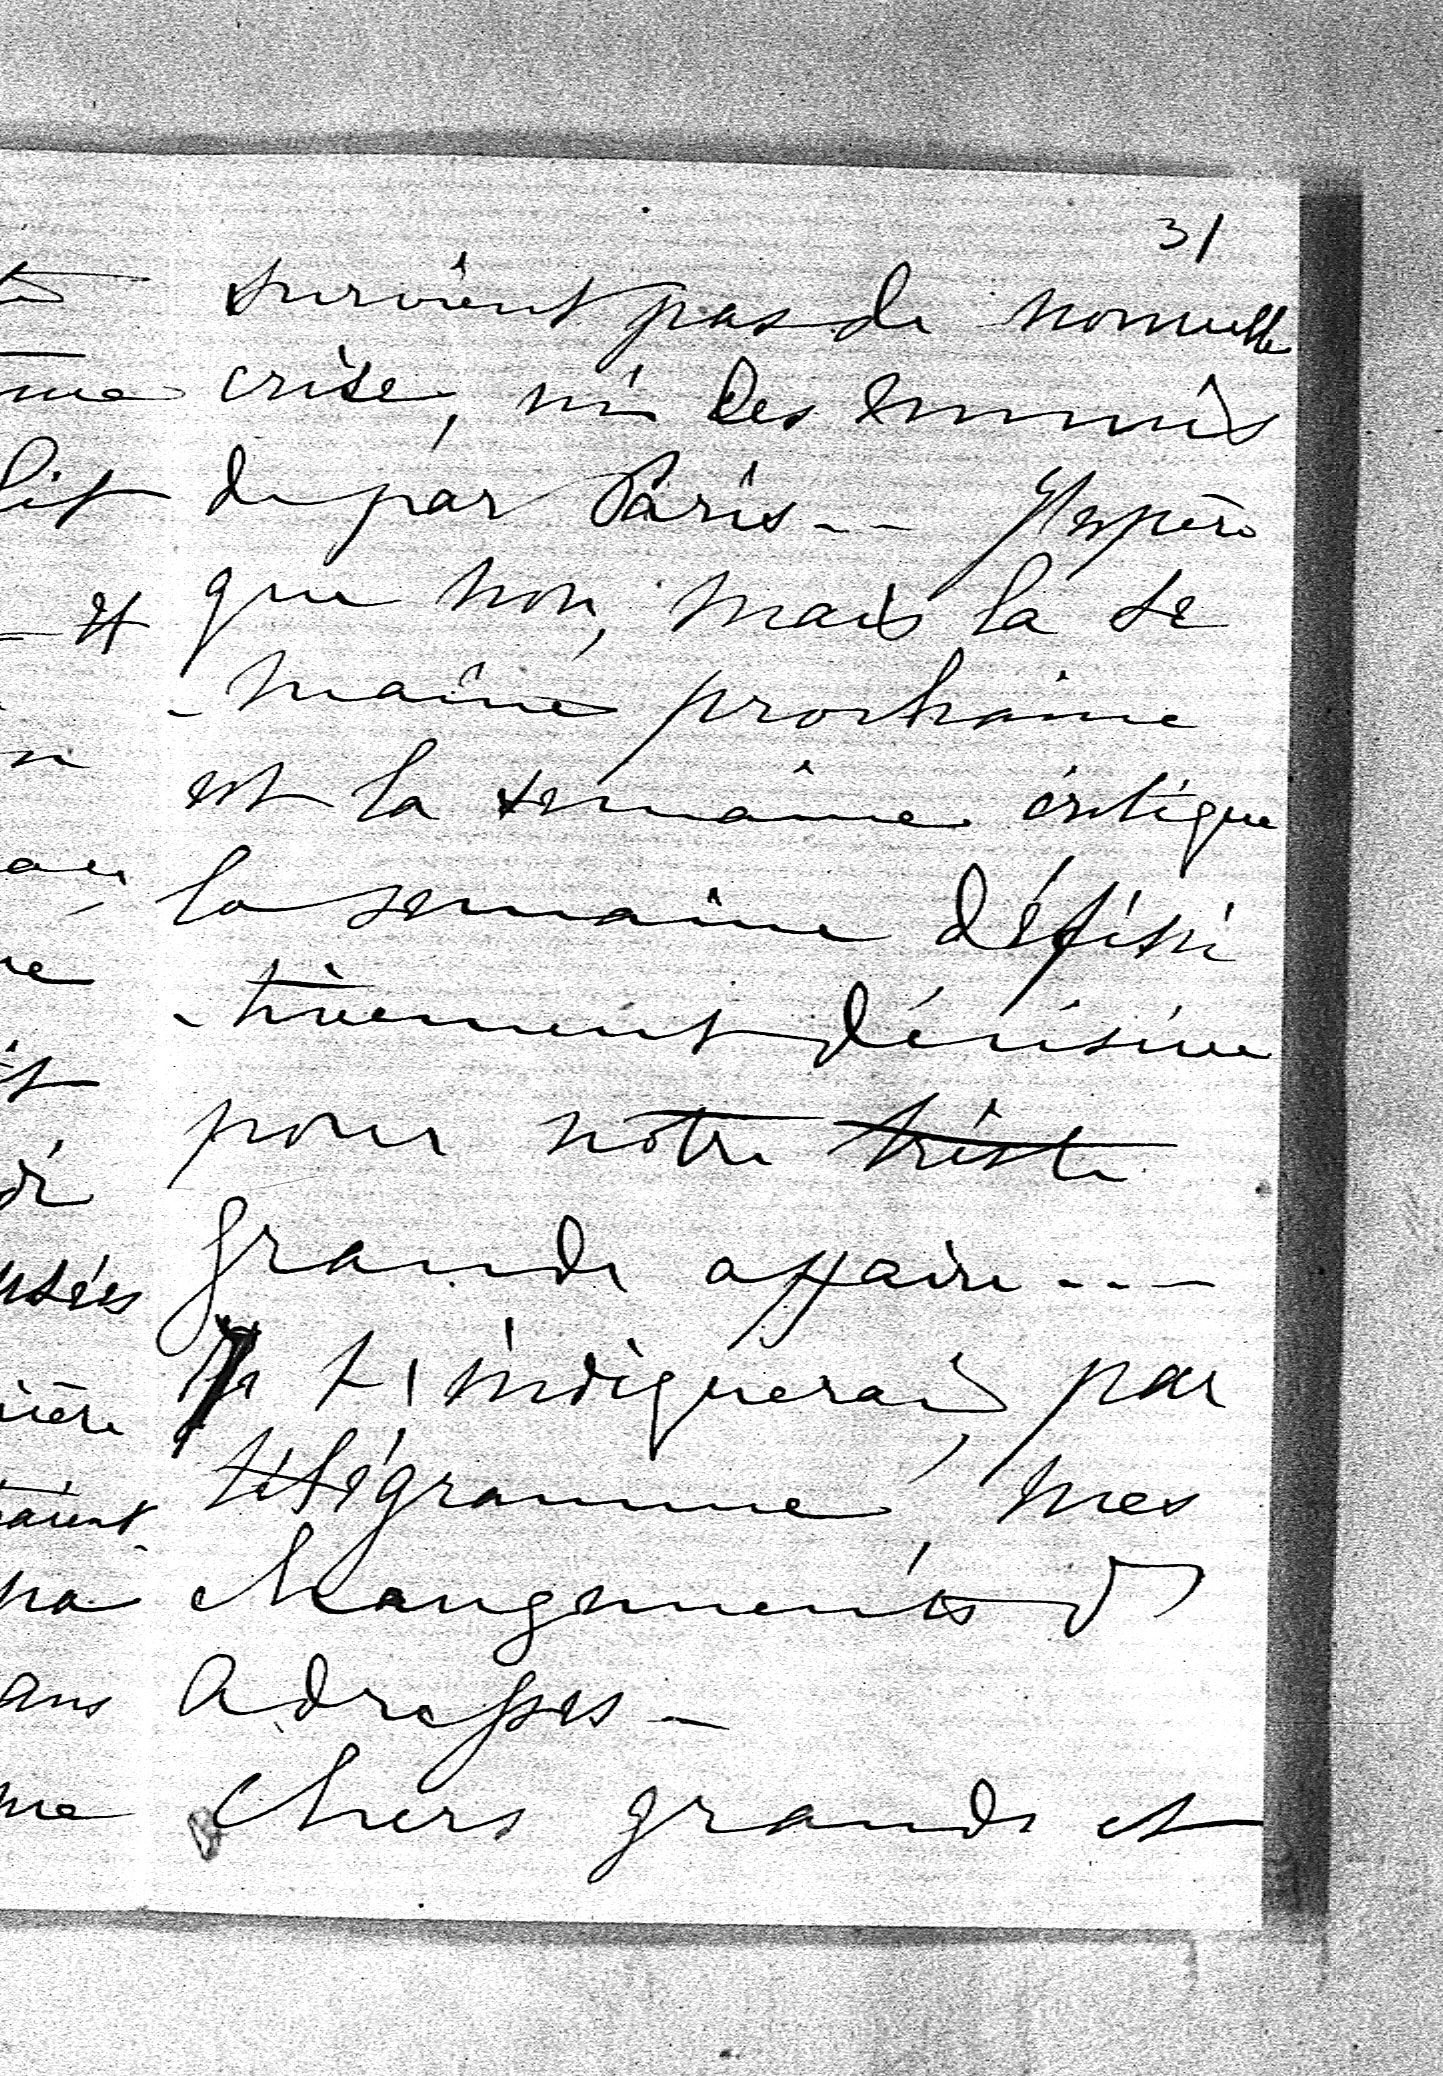 31
survient pas de nouvelle
crise, ni des ennuis
de par Paris -- J'espère
que non, mais la se
-maine prochaine
est la semaine critique
la semaine défini
-tivement décisive
pour notre triste
grande affaire ---
Je t'indiquerai, par
télégramme, mes
changements d'
adresses -
Chers grands et